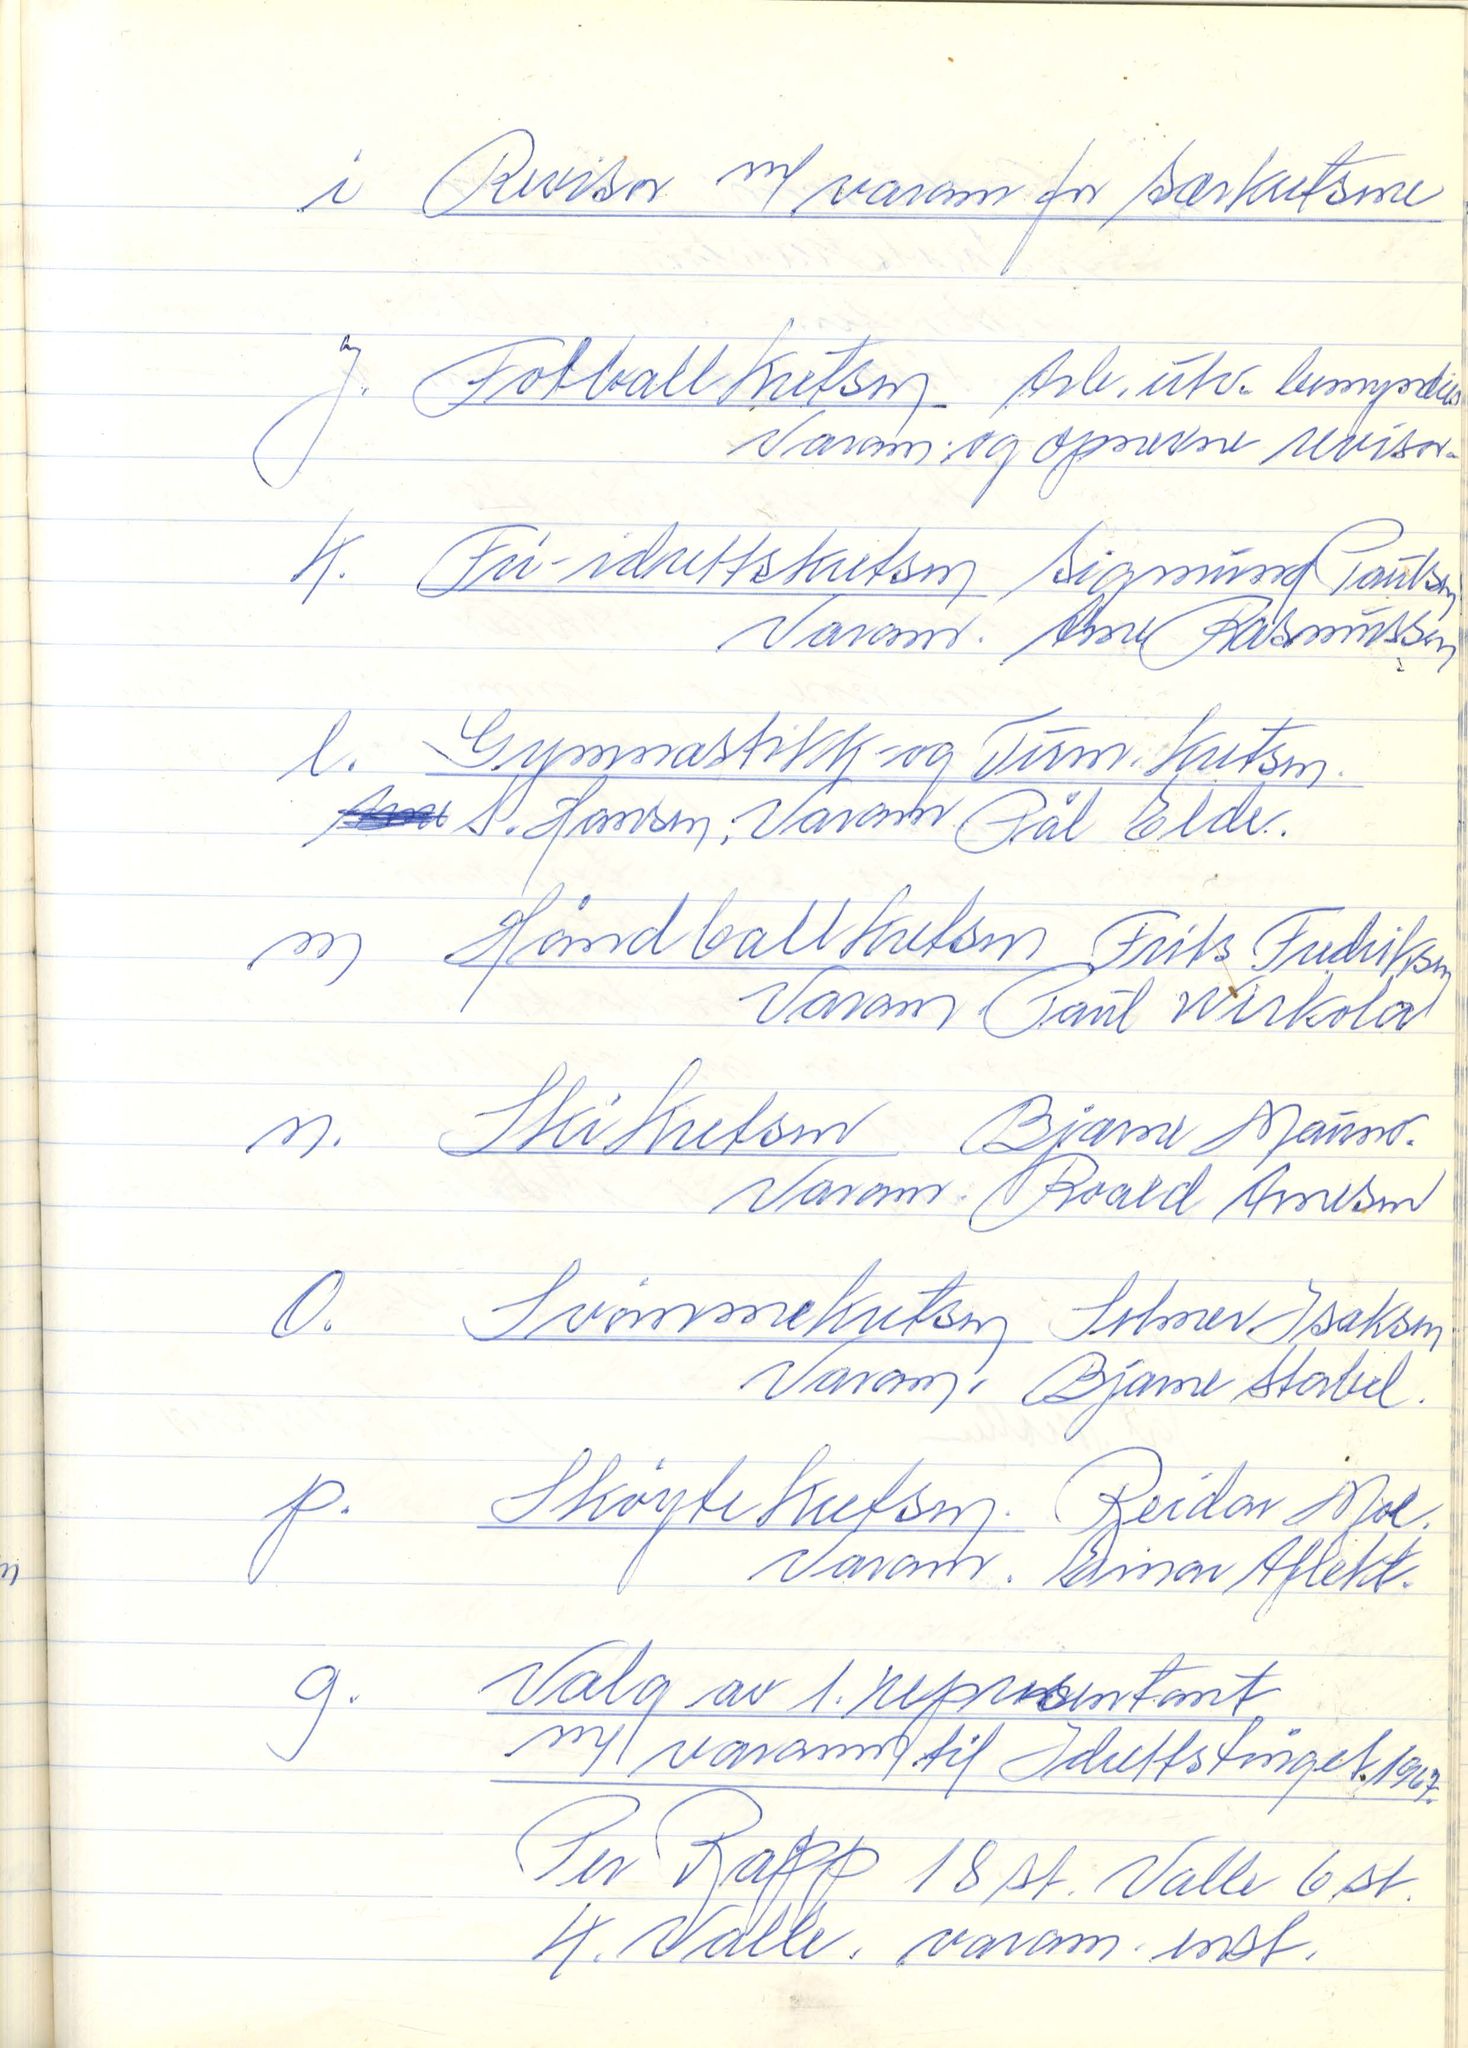 i Revisor m/ varam for særkretsene
j. Fotballkretsen Arb. utv. bemyndiges
Varam. og opnevne revisor.
k. Fri-idrettskretsen Sigmund Paulsen
Varam. Arne Rasmussen
l. Gymnastikk- og Turnkretsen.
S. Hansen, Varam Pål Elde.
m Håndballkretsen Frits Fredriksen
Varam Paul Wirkola
n. Skikretsen Bjarne Mauno.
Varam. Roald Arnesen
O. Svömmekretsen Solmer Isaksen.
Varam. Bjarne Stabel.
p. Sköytekretsen. Reidar Moe.
Varam. Einar Aflekt.
q. Valg av 1. representant
m/ varam til Idrettstinget 1967.
Per Rapp 18 st. Valle 6 st.
K. Valle. varam. enst.